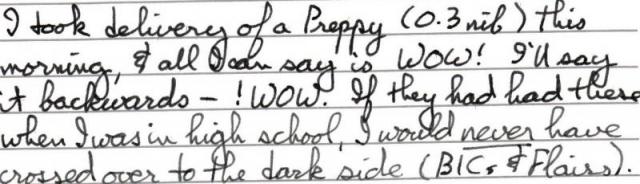 I took delivery of a Preppy (0.3 nib) this
morning, & all I can say is WOW! I'll say
it backwards – !WOW. If they had had these
when I was in high school, I would never have
crossed over to the dark side (BICs & Flairs).